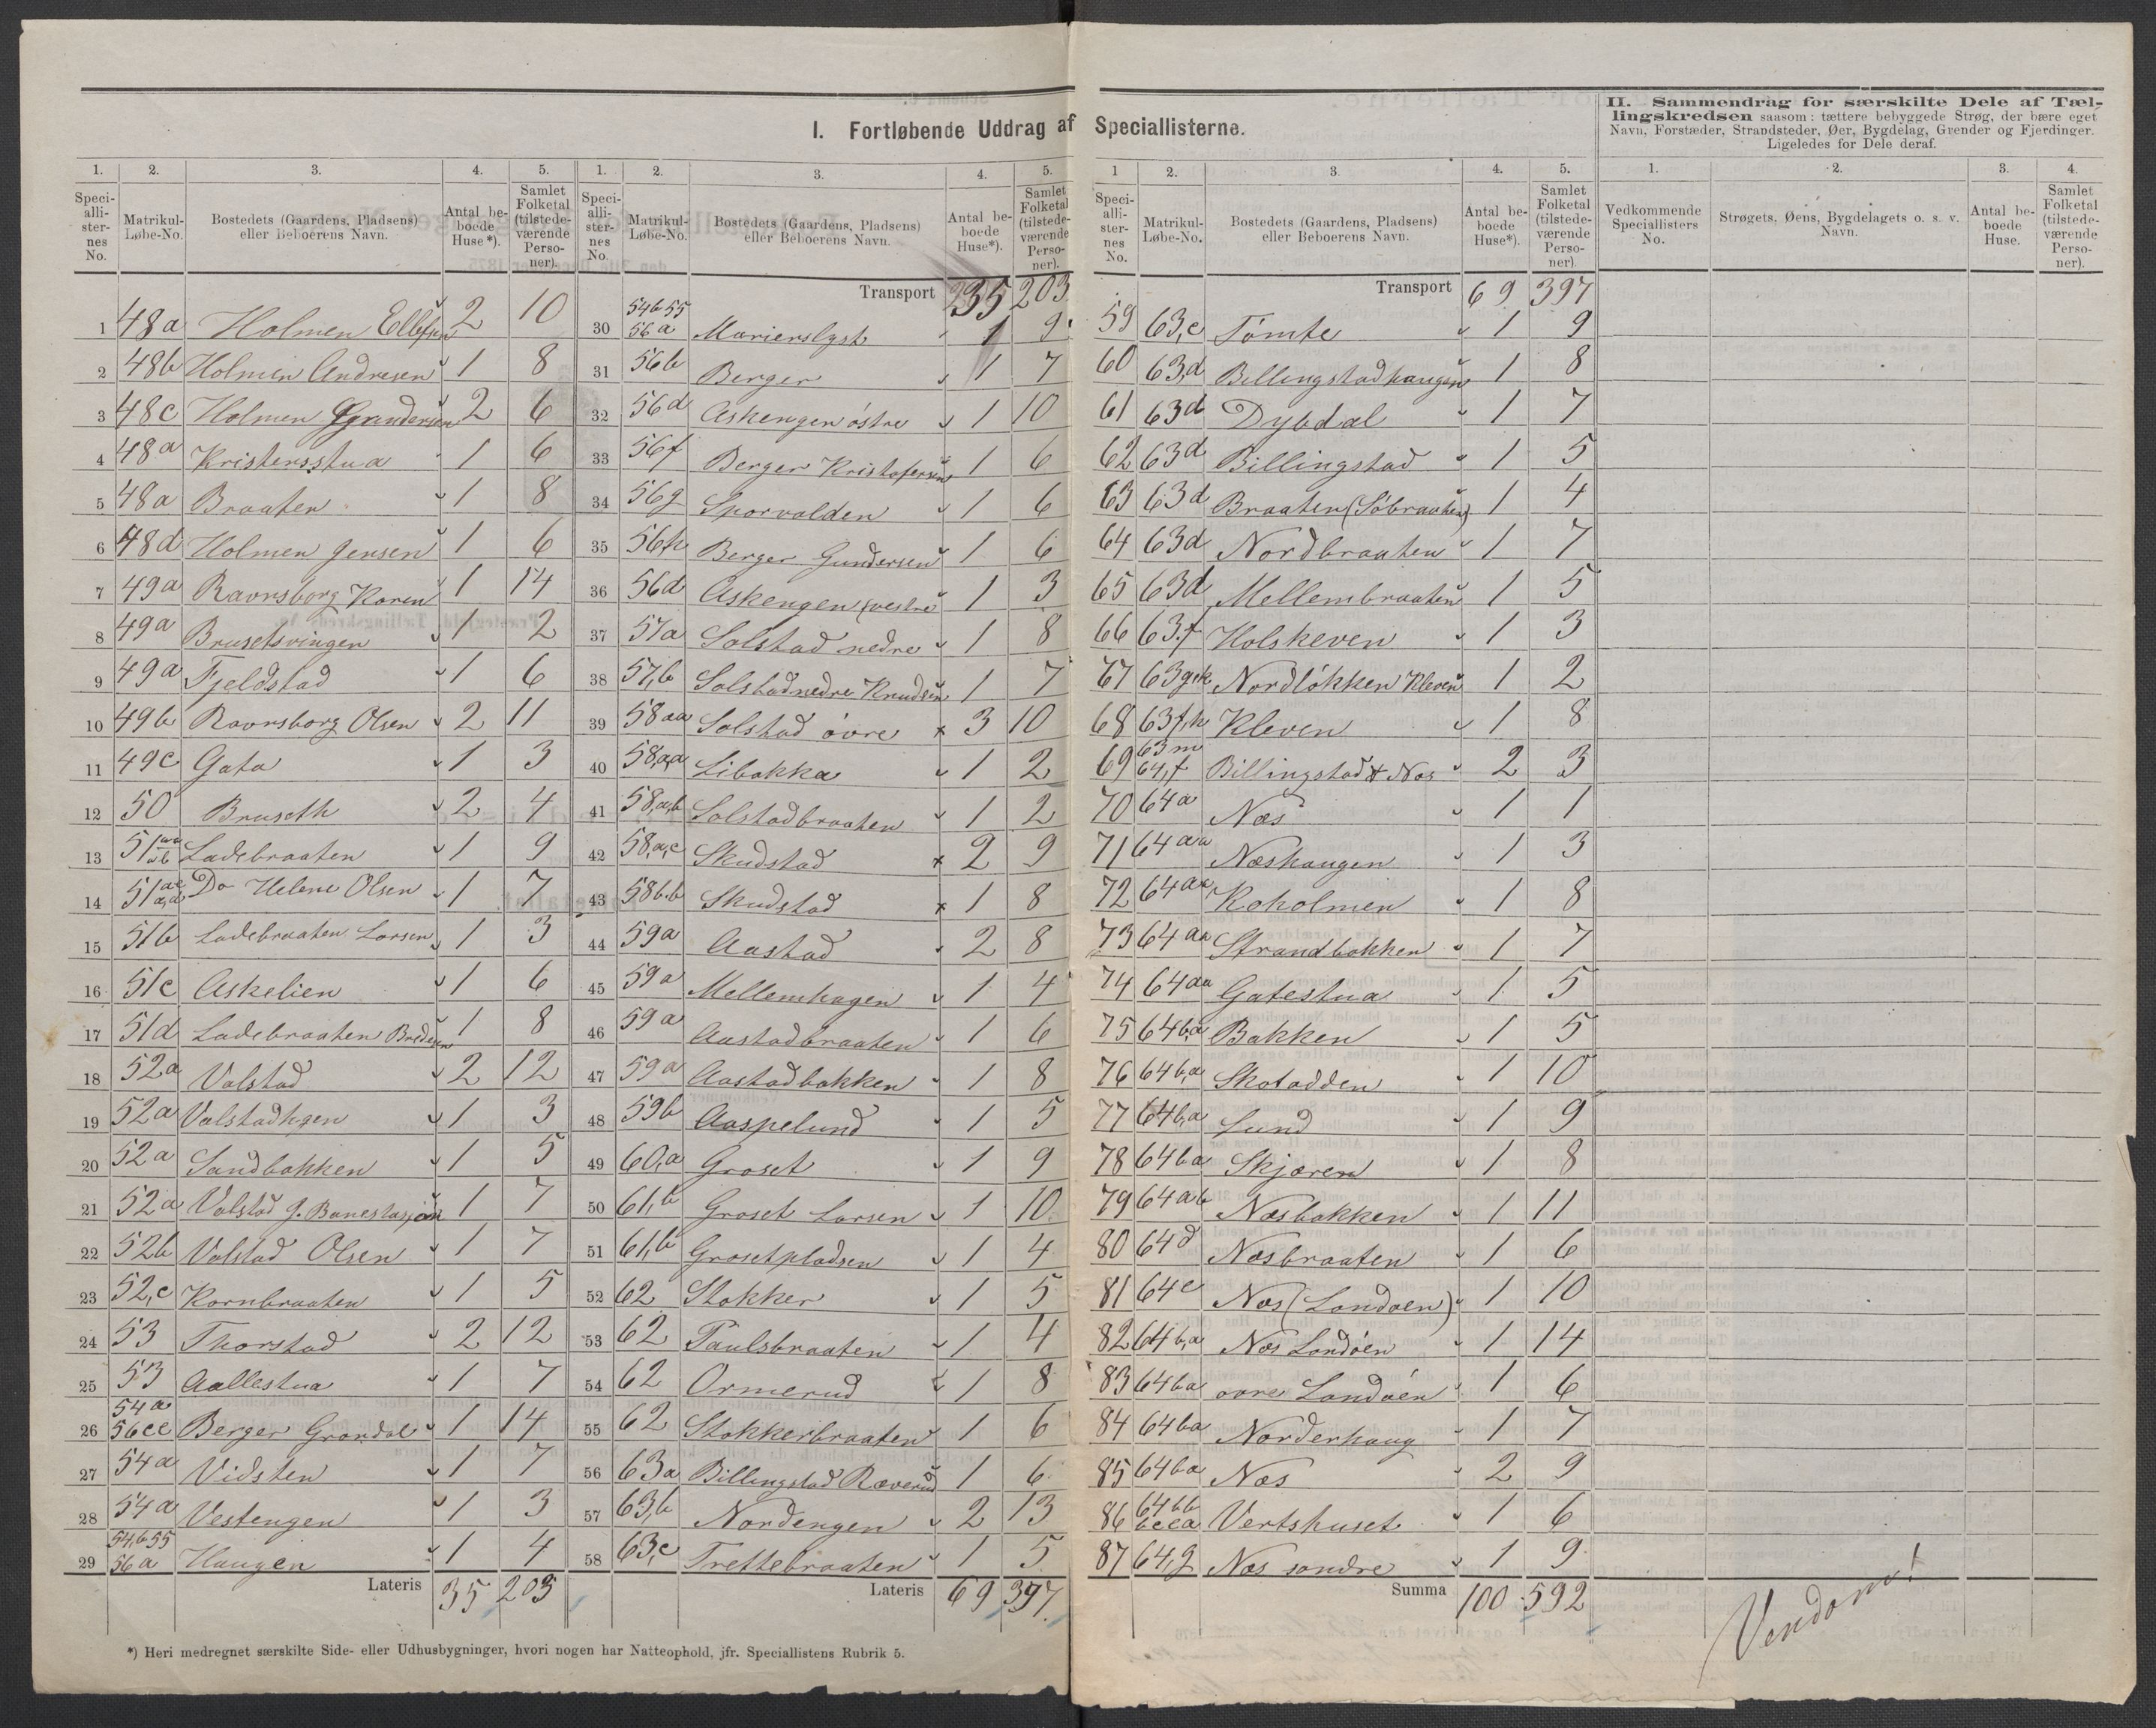 I. Fortløbende Uddrag af Speciallisterne.
1. 2. 3. 4. 5.
Speci-alli-ster-nes No. Matrikul-Løbe-No. Bostedets (Gaardens, Pladsens) eller Beboerens Navn. Antal be-boede Huse*). Samlet Folketal (tilstede-værende Perso-ner).
1 48a Holmen Ellefsen 2 10
2 48b Holmen Andresen 1 8
3 48c Holmen Gundersen 2 6
4 48a Kristensstua 1 6
5 48a Braaten 1 8
6 48d Holmen Jensen 1 6
7 49a Ravnsborg Karen 1 14
8 49a Brusetsvingen 1 2
9 49a Fjeldstad 1 6
10 49b Ravnsborg Olsen 2 11
11 49c Gata 1 3
12 50 Bruseth 2 4
13 51 aa ab Ladebraaten 1 9
14 51 ac ad Do Helene Olsen 1 7
15 51b Ladebraaten Larsen 1 3
16 51c Askelien 1 6
17 51d Ladebraaten Bredesen 1 8
18 52a Valstad 2 12
19 52a Valstadhgen 1 3
20 52a Sandbakken 1 5
21 52a Valstad J. Banestasjon 1 7
22 52b Valstad Olsen 1 7
23 52,c Kornbraaten 1 5
24 53 Thorstad 2 12
25 53 Aallestua 1 7
26 54a 56ce Berger Grøndal 1 14
27 54a Vidsten 1 7
28 54a Vestengen 1 3
29 54,b 55 56a Haugen 1 4
Lateris 35 203
1. 2. 3. 4. 5.
Speci-alli-ster-nes No. Matrikul-Løbe-No. Bostedets (Gaardens, Pladsens) eller Beboerens Navn. Antal be-boede Huse*). Samlet Folketal (tilstede-værende Perso-ner).
Transport 35 203
30 54b 55 56a Marienslyst 1 9
31 56b Berger 1 7
32 56d Askengen østre 1 10
33 56f Berger Kristofersen 1 6
34 56g Skorvalden 1 6
35 56h Berger Gundersen 1 6
36 56d Askengen (vestre 1 3
37 57a Solstad nedre 1 8
38 57,b Solstad nedre Knudsen 1 7
39 58aa Solstad øvre 3 10
40 58,aa Libakka 1 2
41 58,a,b Solstadbraaten 1 2
42 58,a,c Skudstad 2 9
43 58b,b Skudstad 1 8
44 59a Aastad 2 8
45 59a Mellemhagen 1 4
46 59a Aastadbraaten 1 6
47 59a Aastadbakken 1 8
48 59b Aaspelund 1 5
49 60,a Groset 1 9
50 61,b Groset Larsen 1 10
51 61,b Grosetpladsen 1 4
52 62 Stokker 1 5
53 62 Paulsbraaten 1 4
54 62 Ormerud 1 8
55 62 Stokkerbraaten 1 6
56 63a Billingstad Ræverud 1 6
57 63,b Nordengen 2 13
58 63,c Trettebraaten 1 5
Lateris 69 397
1 2. 3. 4. 5.
Speci-alli-ster-nes No. Matrikul-Løbe-No. Bostedets (Gaardens, Pladsens) eller Beboerens Navn. Antal be-boede Huse*). Samlet Folketal (tilstede-værende Perso-ner).
Transport 69 397
59 63,c Tømte 1 9
60 63,d Billingstadhaugen 1 8
61 63d Dybdal 1 7
62 63d Billingstad 1 5
63 63d Braaten (Søbraaten) 1 4
64 63d Nordbraaten 1 7
65 63d Mellembraaten 1 5
66 63.f Holskeven 1 3
67 63gik Nordløkken Kleven 1 2
68 63f,h Kleven 1 8
69 63m 64,f Billingstad & Nes 2 3
70 64a Næs 1 1
71 64aa Næshaugen 1 3
72 64aa Koholmen 1 8
73 64aa Strandbakken 1 7
74 64aa Gatestua 1 5
75 64b,a Bakken 1 5
76 64b,a Skotadden 1 10
77 64b,a Lund 1 9
78 64ba Skjæren 1 8
79 64ab Næsbakken 1 11
80 64d Næsbraaten 1 6
81 64e Næs (Landøen) 1 10
82 64b,a Næs Landøen 1 14
83 64ba øvre Landøen 1 6
84 64ba Nørderhaug 1 7
85 64ba Næs 2 9
86 64bb Vertshuset 1 6
87 64,g Næs søndre 1 9
Summa 100 592
II. Sammendrag for særskilte Dele af Tæl-
lingskredsen saasom: tættere bebyggede Strøg, der bære eget
Navn, Forstæder, Strandsteder, Øer, Bygdelag, Grender og Fjerdinger.
Ligeledes for Dele deraf.
1. 2. 3. 4.
Vedkommende Speciallisters No. Strøgets, Øens, Bygdelagets o. s. v. Navn. Antal be-boede Huse. Samlet Folketal (tilstede-værende Perso-ner).
*) Heri medregnet særskilte Side- eller Udhusbygninger, hvori nogen har Natteophold, jfr. Speciallistens Rubrik 5.